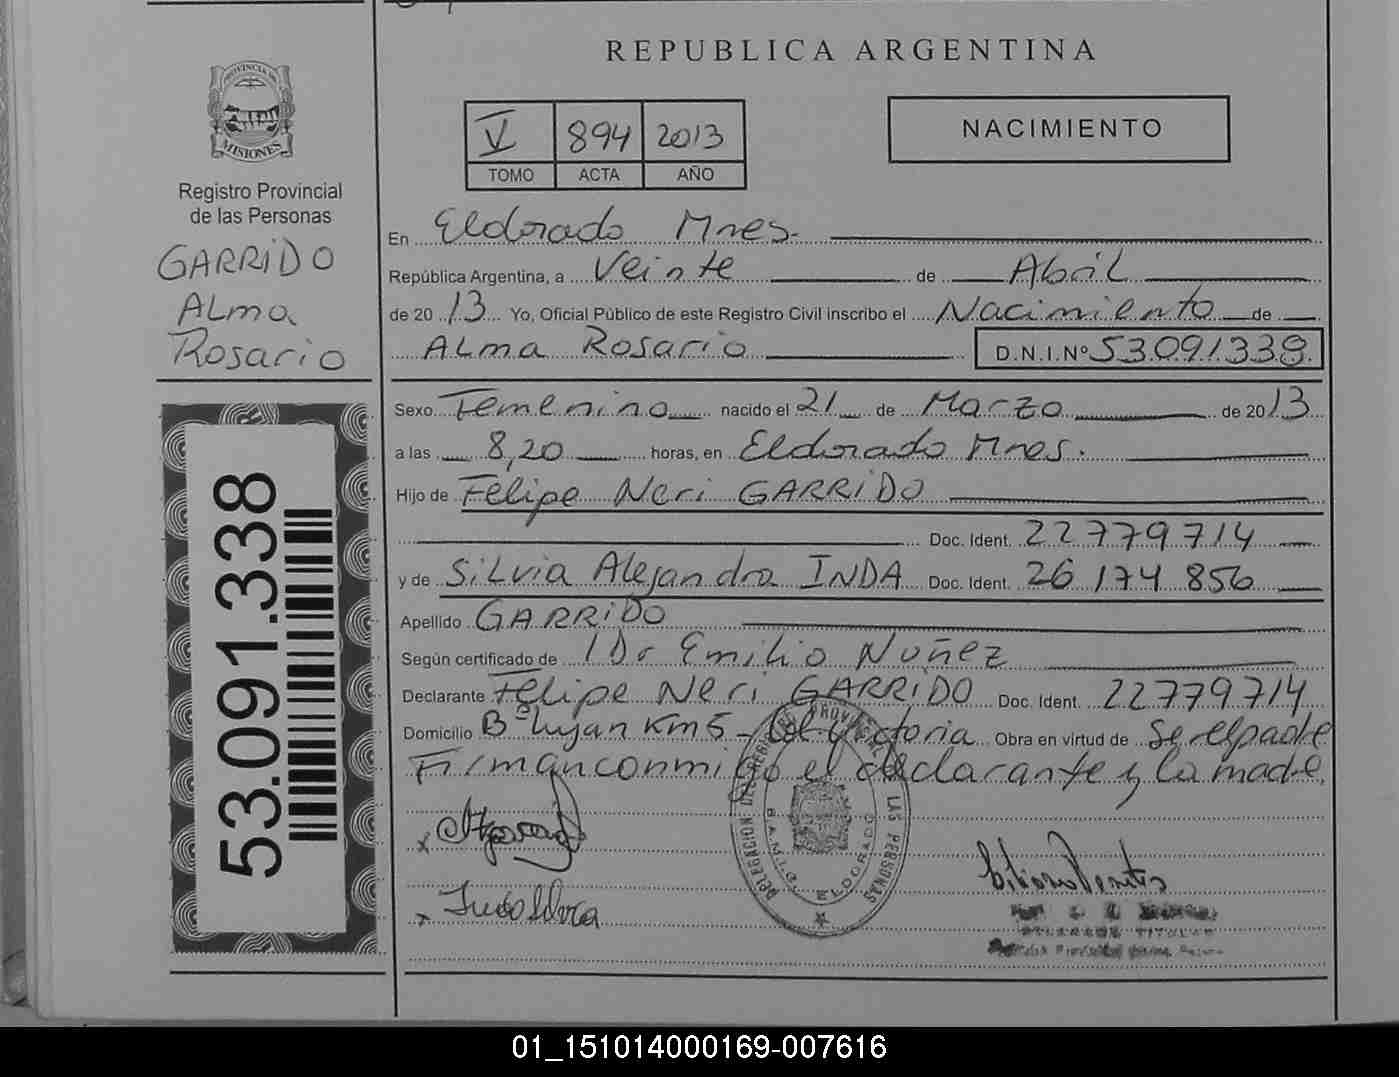 REPUBLICA ARGENTINA
PROVINCIA DE
MISIONES
Registro Provincial
de las Personas
GARRIDO
ALma
Rosario
53.091.338
V 894 2013
TOMO ACTA AÑO
NACIMIENTO
En Eldorado Mnes.
República Argentina, a Veinte de Abril
de 20 13 Yo, Oficial Público de este Registro Civil inscribo el Nacimiento de
ALma Rosario D.N.I.Nº 53.091.338.
Sexo Femenino nacido el 21 de Marzo de 20 13
a las 8,20 horas, en Eldorado Mnes.
Hijo de Felipe Neri GARRIDO
Doc. Ident. 22779714
y de Silvia Alejandra INDA Doc. Ident. 26 174 856
Apellido GARRIDO
Según certificado de Dr Emilio Nuñez
Declarante Felipe Neri GARRIDO Doc. Ident. 22779714
Domicilio Bº Lujan Km 5 - Victoria Obra en virtud de Ser el padre
Firman conmigo el declarante y la madre.
DELEGACION DEL REGISTRO PROVINCIAL DE LAS PERSONAS
ELDORADO
x
x Inda Silvia
TITULAR
01_151014000169-007616